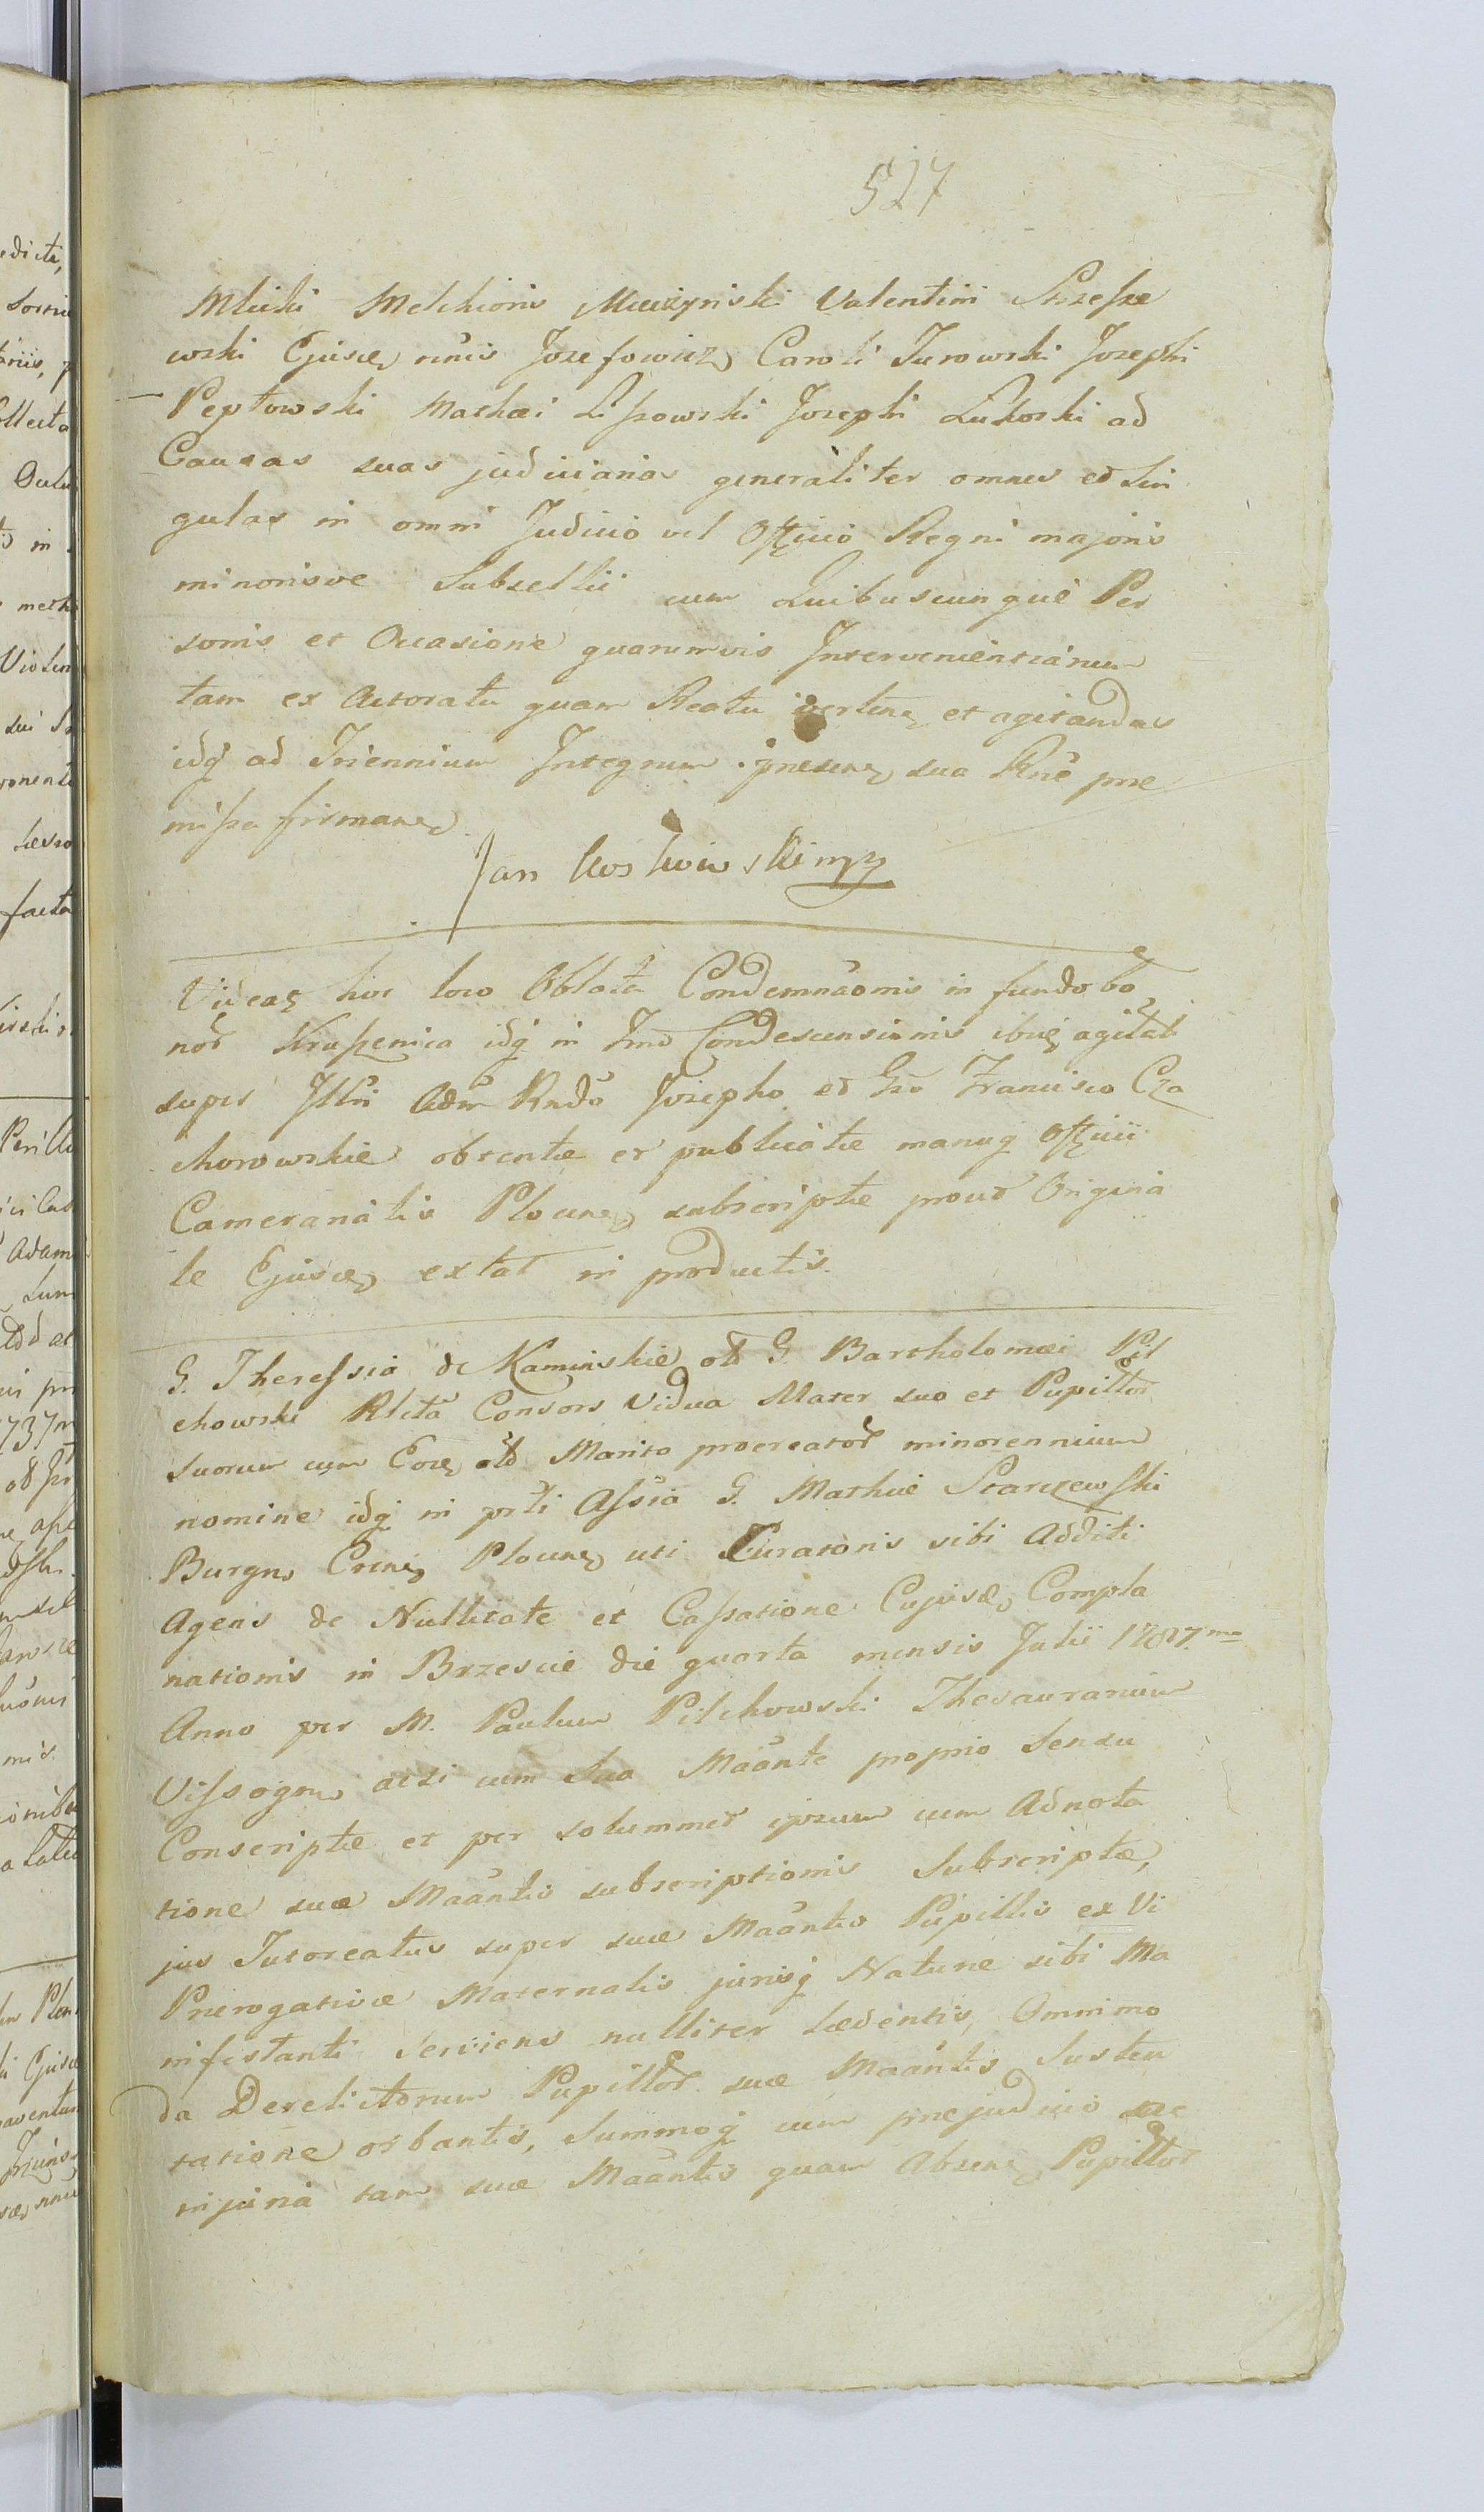 527
Mlicki Melchioris Muczyński Valentini Strzesze
wski Ejusd nnis Jozefowicz Caroli Turowski Josephi
Peptowski Mathæi Lissowski Josephi Lukoski ad
Causas suas judiciarias generaliter omnes ed Sin
gulas in omni Judicio vel Officio Regni majoris
minorisve Subsellii cum Quibuscunque Per
sonis et Occasione quarumvis Intervenientiarum
tam ex Actoratu quam Reatu verten et agitandas
idq ad Triennium Integrum presen sua Rne præ
missa firman
Jan Koskowski mp
Videat hic loco Oblata Condemnaonis in fundo bo
nor Krussenica idq in Tmo Condescensionis ibid agitat
super Illri Adm Rndo Josepho ed Gso Francisco Cza
chorowskie obtentæ et publicatæ manuq Officii
Cameranalis Plocen subscriptæ prout Origina
le Ejusd extat in productis.
G. Theressia de Kaminskie olt G. Bartholomæi Pil
chowski Rlcta Consors Vidua Mater suo et Pupillor
suorum cum Eod olt Marito procreator minorennium
nomine idq in prti Assia G. Mathiæ Starczewski
Burgr Crens Plocen uti Curatoris sibi Additi
Agens de Nullitate et Cassatione Cujusd Compla
nationis in Brzescie die quarta mensis Julii 1787mo
Anno per M. Paulum Pilchowski Thesaurarium
Vissogr acsi cum Sua Maante proprio Sensu
Conscriptæ et per solummod ipsum cum Adnota
tione suæ Maantis subscriptionis Subscriptæ,
jus Tutoreatus super suæ Maantis Pupillis ex Vi
Prærogativæ Maternalis jurisq Naturæ sibi Ma
nifestanti Serviens nulliter lædentis, Omnimo
da Derelictorum Pupillor suæ Maantis Susten
tatione orbantis, Summoq cum præjudicio ac
injuria tam suæ Maantis quam Absen Pupillor